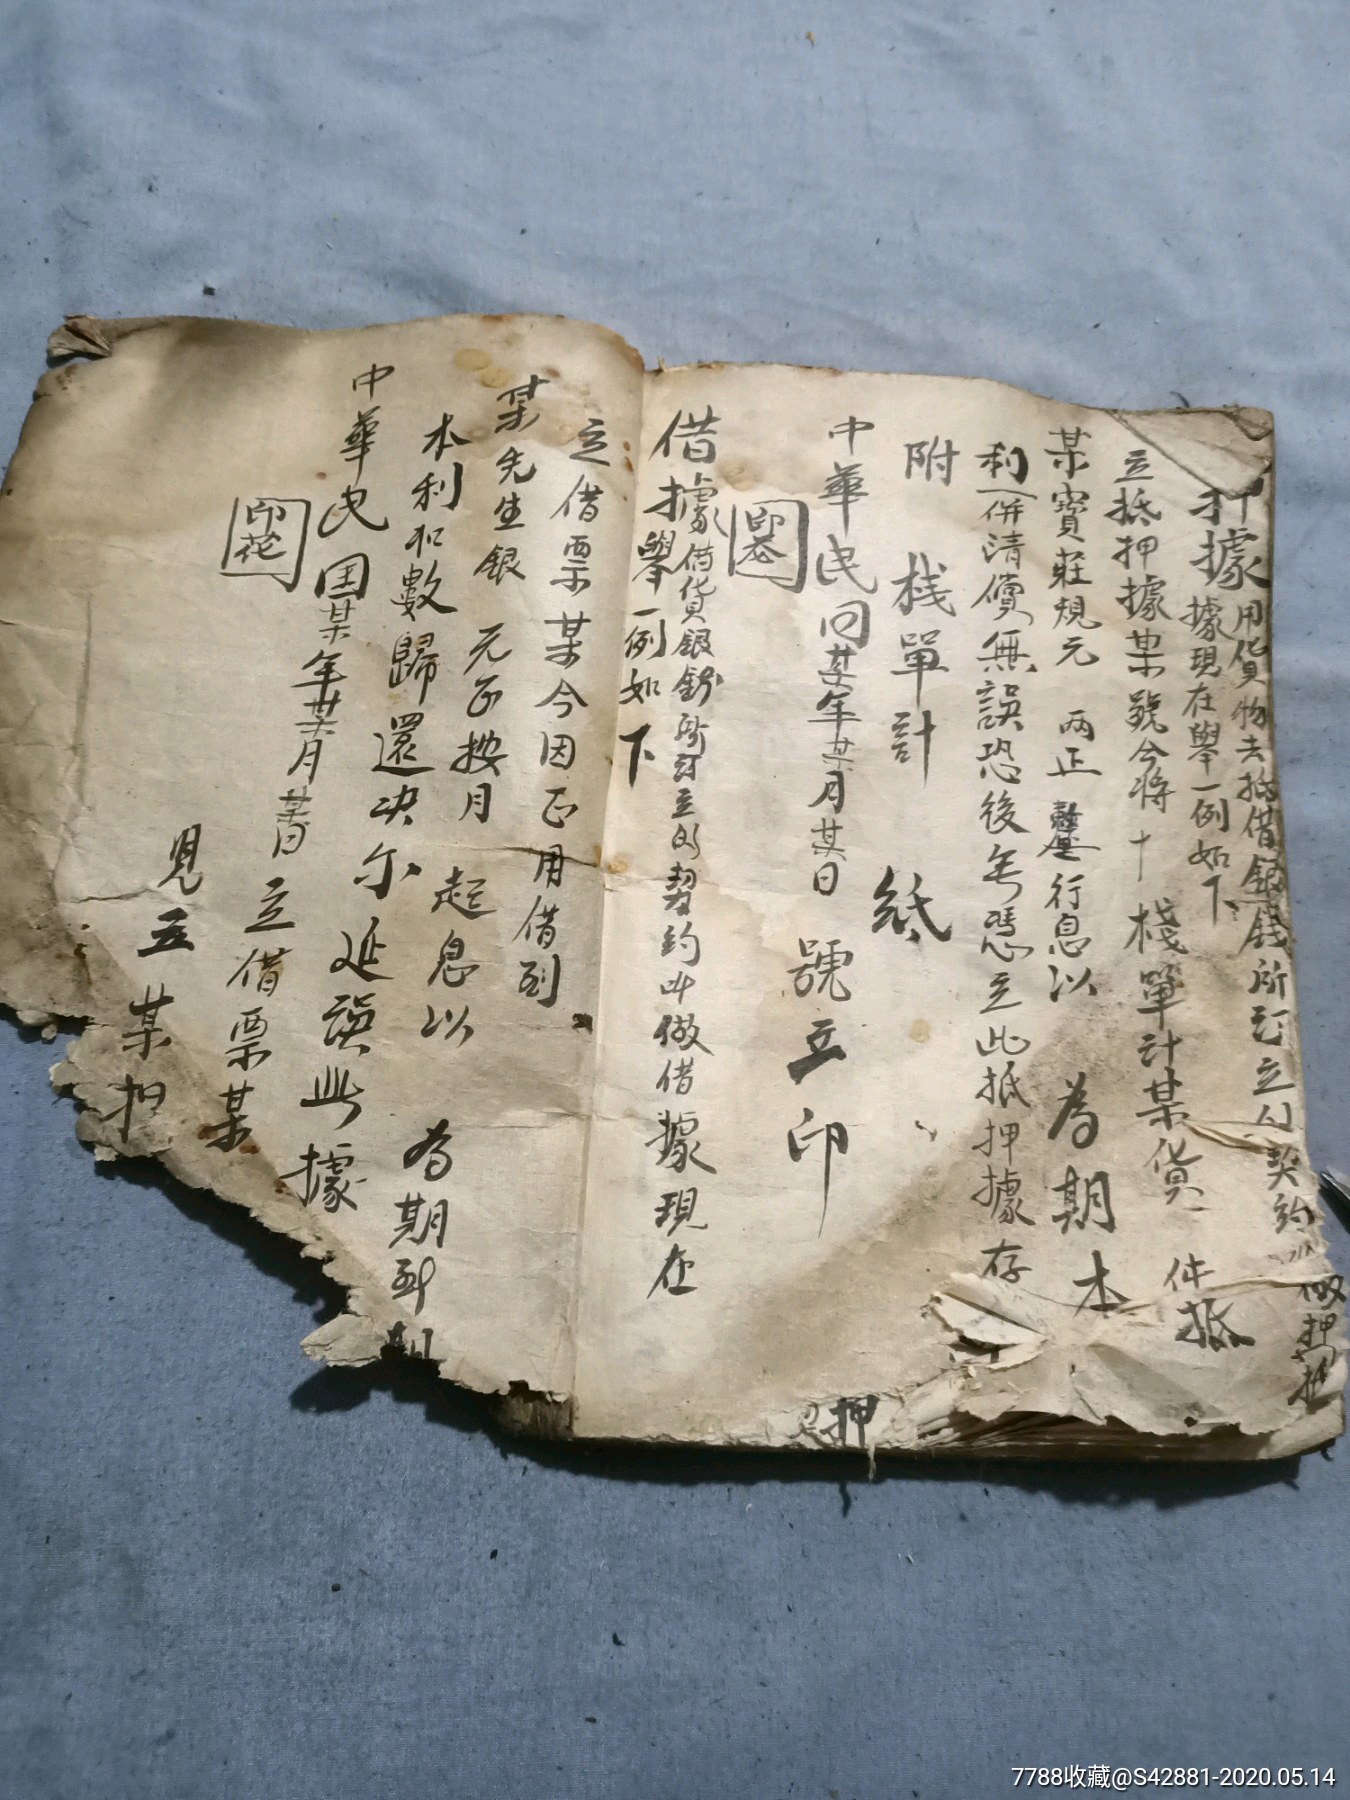 押據用貨物去抵借銀錢所訂立的契約
做押據
據現在舉一例如下
立抵押據某號今將 棧單計某貨 件抵
某寶莊規元 兩正 行息以 為期本
利一併清償無誤恐後無憑立此抵押據存
附 棧單計 紙
中華民囯某年某月某日 號立印
押
印花
借據借貨銀錢所訂立的契約叫做借據現在
舉一例如下
立借票某今因正用借到
某先生銀 元正按月 起息以 為期到期
本利如數歸還决不延誤此據
中華民国某年某月某日 立借票某
印花
見立某押
7788收藏@S42881-2020.05.14